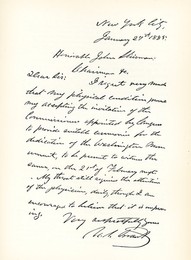 New York City,
January 27th 1885.
Honorable John Sherman
Chairman &c.
Dear Sir: I regret very much
that my physical condition prevents
my accepting the invitation of the
Commissioners appointed by Congress
to provide suitable ceremonies for the
dedication of the Washington Mon-
ument, to be present to witness the
same, on the 21st of February next.
My throat still requires the attention
of the physician, daily, though I am
encouraged to believe that it is improv-
ing.
Very respectfully yours
U. S. Grant